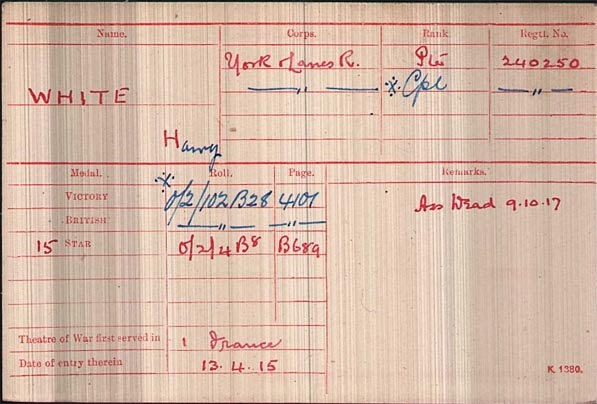 Name. Corps. Rank. Regtl. No.
York & Lancs R. Pte 240250
WHITE — " — ※ Cpl — " —
Harry
Medal. Roll. Page. Remarks.
VICTORY ※ O/2/102 B28 4101 Ass Dead 9.10.17
BRITISH — " — — " —
15 STAR O/2/4 B8 B689
Theatre of War first served in 1 France
Date of entry therein 13.4.15
K. 1380.